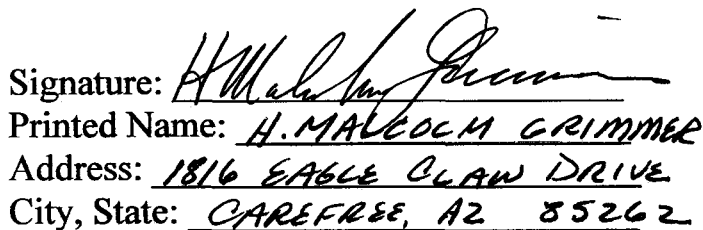 Signature: H Malcolm Grimmer
Printed Name: H. MALCOLM GRIMMER
Address: 1816 EAGLE CLAW DRIVE
City, State: CAREFREE, AZ 85262